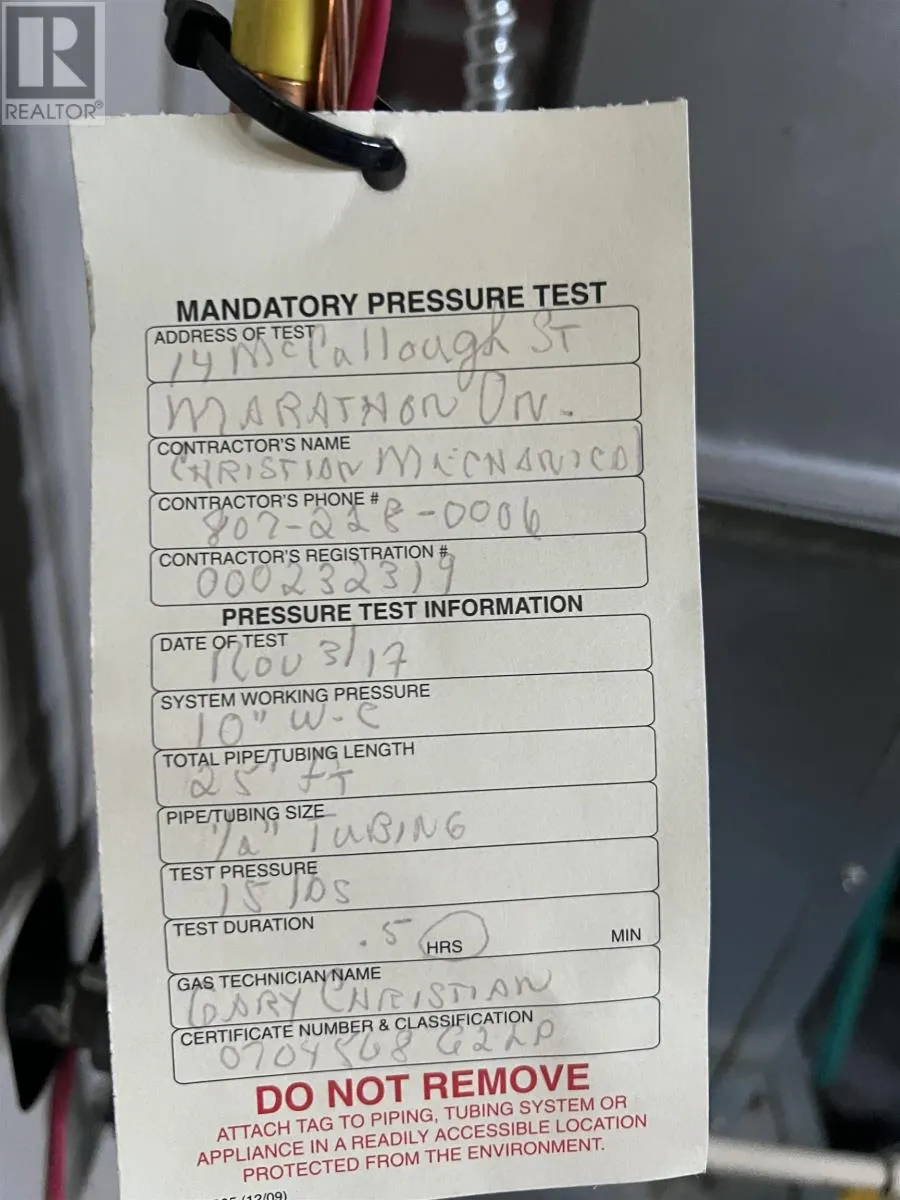 R
REALTOR®
MANDATORY PRESSURE TEST
ADDRESS OF TEST
14 McCallough ST
MARATHON ON.
CONTRACTOR'S NAME
CHRISTIAN MECHANICAL
CONTRACTOR'S PHONE #
807-228-0006
CONTRACTOR'S REGISTRATION #
000232319
PRESSURE TEST INFORMATION
DATE OF TEST
NOV 3/17
SYSTEM WORKING PRESSURE
10" W-C
TOTAL PIPE/TUBING LENGTH
25' FT
PIPE/TUBING SIZE
1/2" TUBING
TEST PRESSURE
15 lbs
TEST DURATION
.5 HRS MIN
GAS TECHNICIAN NAME
GARY CHRISTIAN
CERTIFICATE NUMBER & CLASSIFICATION
0704568 G2LP
DO NOT REMOVE
ATTACH TAG TO PIPING, TUBING SYSTEM OR
APPLIANCE IN A READILY ACCESSIBLE LOCATION
PROTECTED FROM THE ENVIRONMENT.
(12/09)